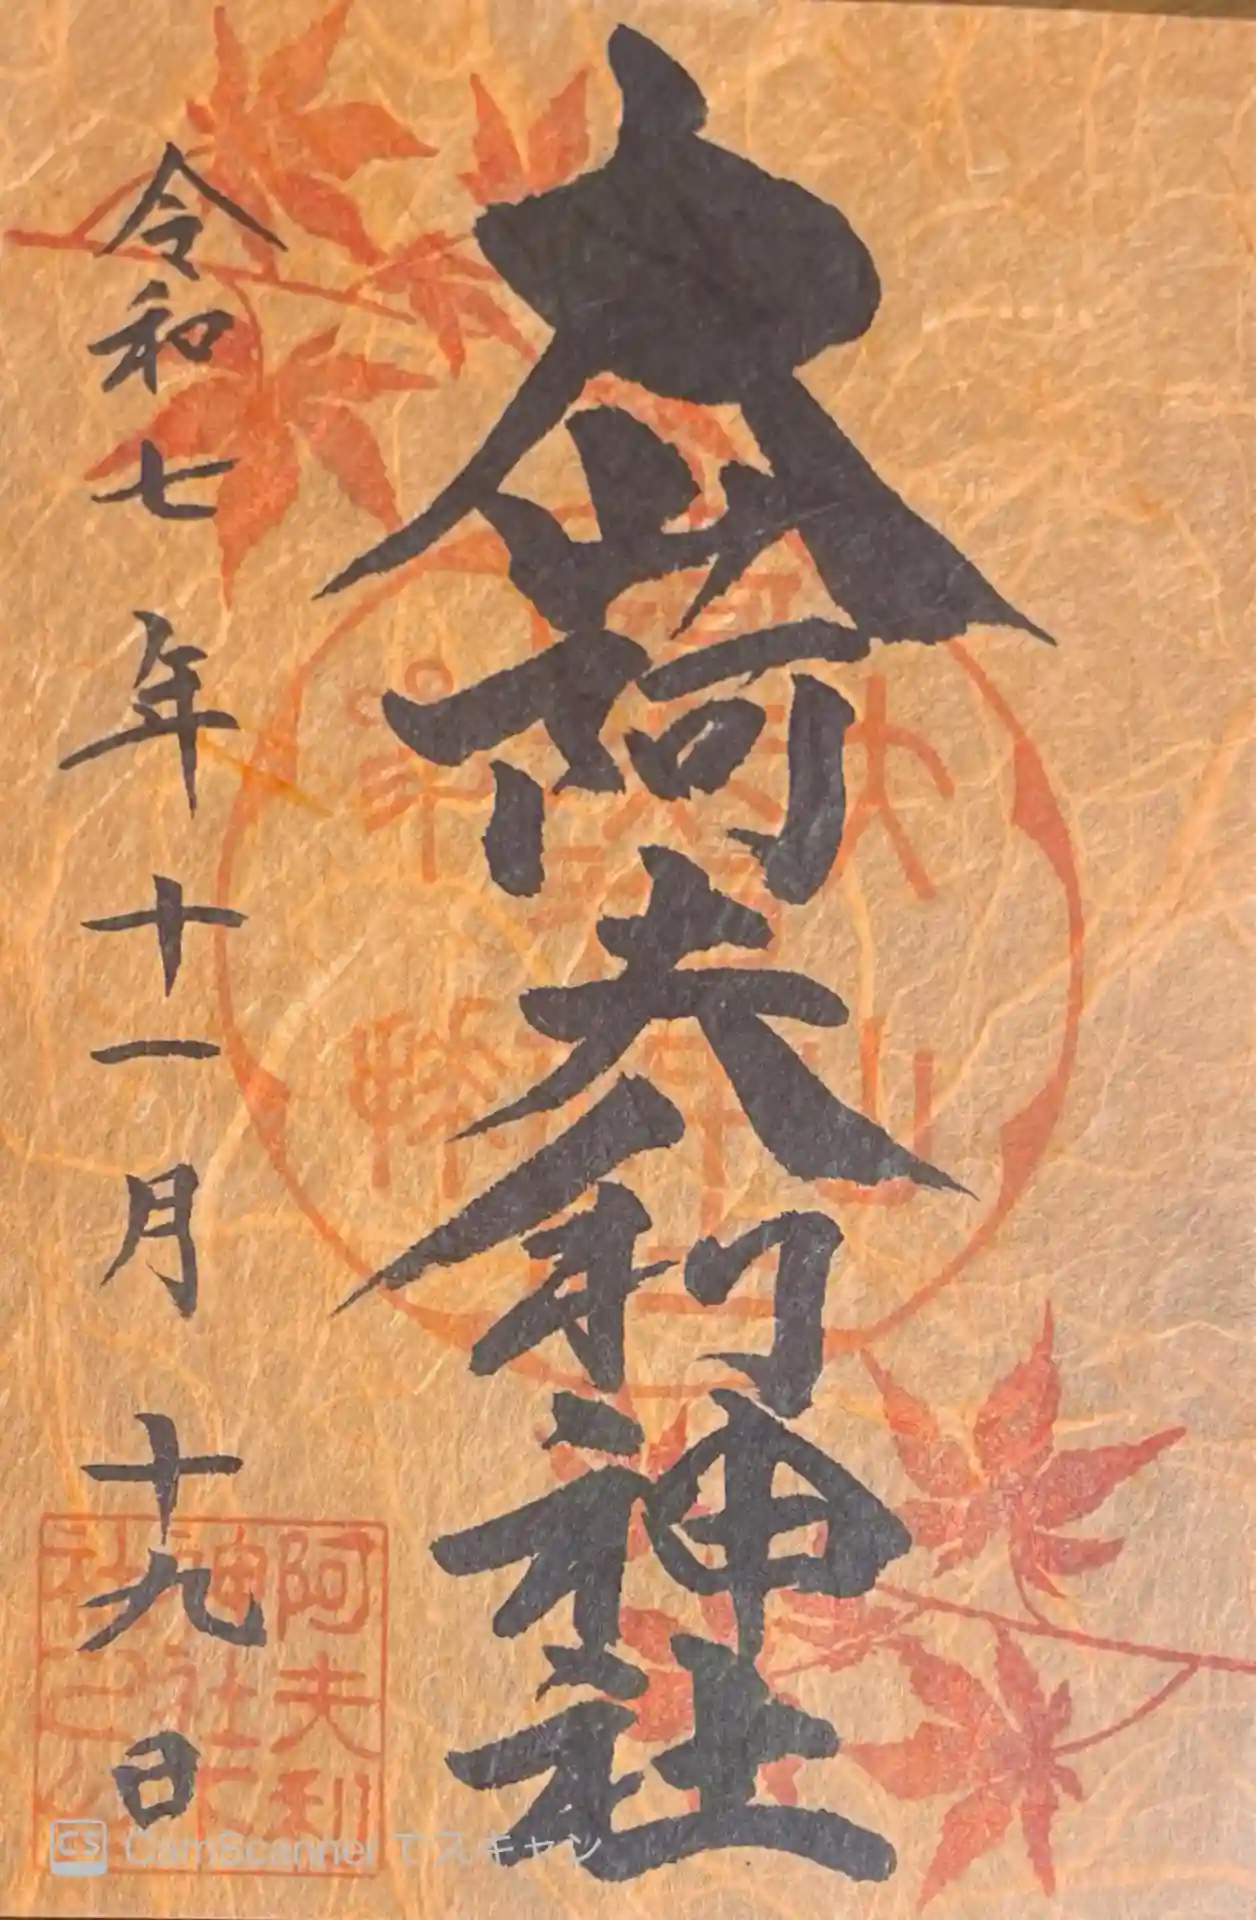 大山阿夫利神社
令和七年十一月十九日
阿夫利
神社下
社
CS CamScanner でスキャン